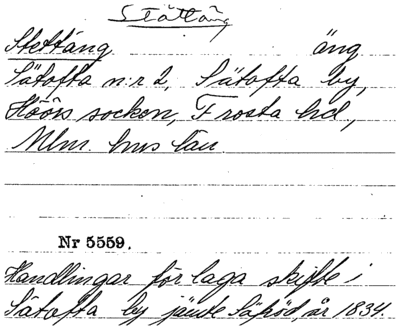 Stättäng
Stettäng äng
Sätofta n:r 2, Sätofta by,
Höörs socken, Frosta hd,
Mlm. hus län.
Nr 5559.
Handlingar för laga skifte i
Sätofta by jämte Säfröd, år 1834.